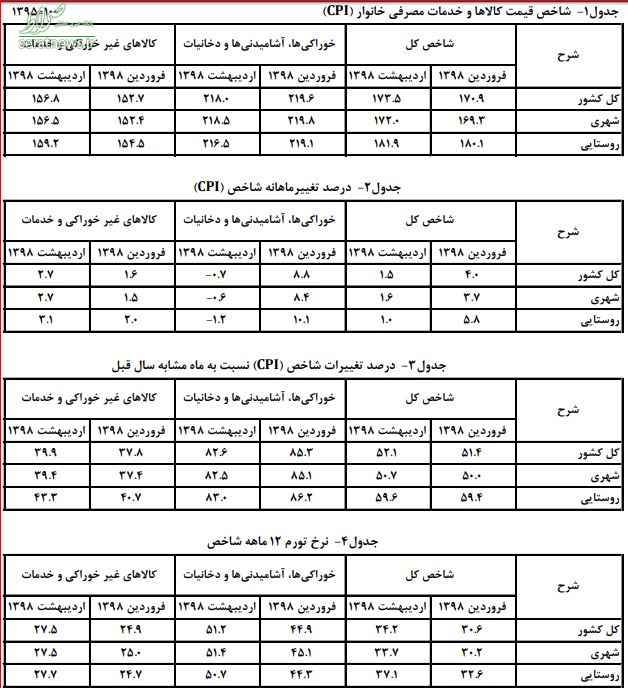 جدول۱- شاخص قیمت کالاها و خدمات مصرفی خانوار (CPI) ۱۰۰=۱۳۹۵
شرح شاخص کل خوراکی‌ها، آشامیدنی‌ها و دخانیات کالاهای غیر خوراکی و خدمات
فروردین ۱۳۹۸ اردیبهشت ۱۳۹۸ فروردین ۱۳۹۸ اردیبهشت ۱۳۹۸ فروردین ۱۳۹۸ اردیبهشت ۱۳۹۸
کل کشور ۱۷۰.۹ ۱۷۳.۵ ۲۱۹.۶ ۲۱۸.۰ ۱۵۲.۷ ۱۵۶.۸
شهری ۱۶۹.۳ ۱۷۲.۰ ۲۱۹.۸ ۲۱۸.۵ ۱۵۲.۴ ۱۵۶.۵
روستایی ۱۸۰.۱ ۱۸۱.۹ ۲۱۹.۱ ۲۱۶.۵ ۱۵۴.۵ ۱۵۹.۲
جدول۲- درصد تغییرماهانه شاخص (CPI)
شرح شاخص کل خوراکی‌ها، آشامیدنی‌ها و دخانیات کالاهای غیر خوراکی و خدمات
فروردین ۱۳۹۸ اردیبهشت ۱۳۹۸ فروردین ۱۳۹۸ اردیبهشت ۱۳۹۸ فروردین ۱۳۹۸ اردیبهشت ۱۳۹۸
کل کشور ۴.۰ ۱.۵ ۸.۸ -۰.۷ ۱.۶ ۲.۷
شهری ۳.۷ ۱.۶ ۸.۴ -۰.۶ ۱.۵ ۲.۷
روستایی ۵.۸ ۱.۰ ۱۰.۱ -۱.۲ ۲.۰ ۳.۱
جدول۳- درصد تغییرات شاخص (CPI) نسبت به ماه مشابه سال قبل
شرح شاخص کل خوراکی‌ها، آشامیدنی‌ها و دخانیات کالاهای غیر خوراکی و خدمات
فروردین ۱۳۹۸ اردیبهشت ۱۳۹۸ فروردین ۱۳۹۸ اردیبهشت ۱۳۹۸ فروردین ۱۳۹۸ اردیبهشت ۱۳۹۸
کل کشور ۵۱.۴ ۵۲.۱ ۸۵.۳ ۸۲.۶ ۳۷.۸ ۳۹.۹
شهری ۵۰.۰ ۵۰.۷ ۸۵.۱ ۸۲.۵ ۳۷.۴ ۳۹.۴
روستایی ۵۹.۴ ۵۹.۶ ۸۶.۲ ۸۳.۰ ۴۰.۷ ۴۳.۳
جدول۴- نرخ تورم ۱۲ماهه شاخص
شرح شاخص کل خوراکی‌ها، آشامیدنی‌ها و دخانیات کالاهای غیر خوراکی و خدمات
فروردین ۱۳۹۸ اردیبهشت ۱۳۹۸ فروردین ۱۳۹۸ اردیبهشت ۱۳۹۸ فروردین ۱۳۹۸ اردیبهشت ۱۳۹۸
کل کشور ۳۰.۶ ۳۴.۲ ۴۴.۹ ۵۱.۲ ۲۴.۹ ۲۷.۵
شهری ۳۰.۲ ۳۳.۷ ۴۵.۱ ۵۱.۴ ۲۵.۰ ۲۷.۵
روستایی ۳۲.۶ ۳۷.۱ ۴۴.۳ ۵۰.۷ ۲۴.۷ ۲۷.۷